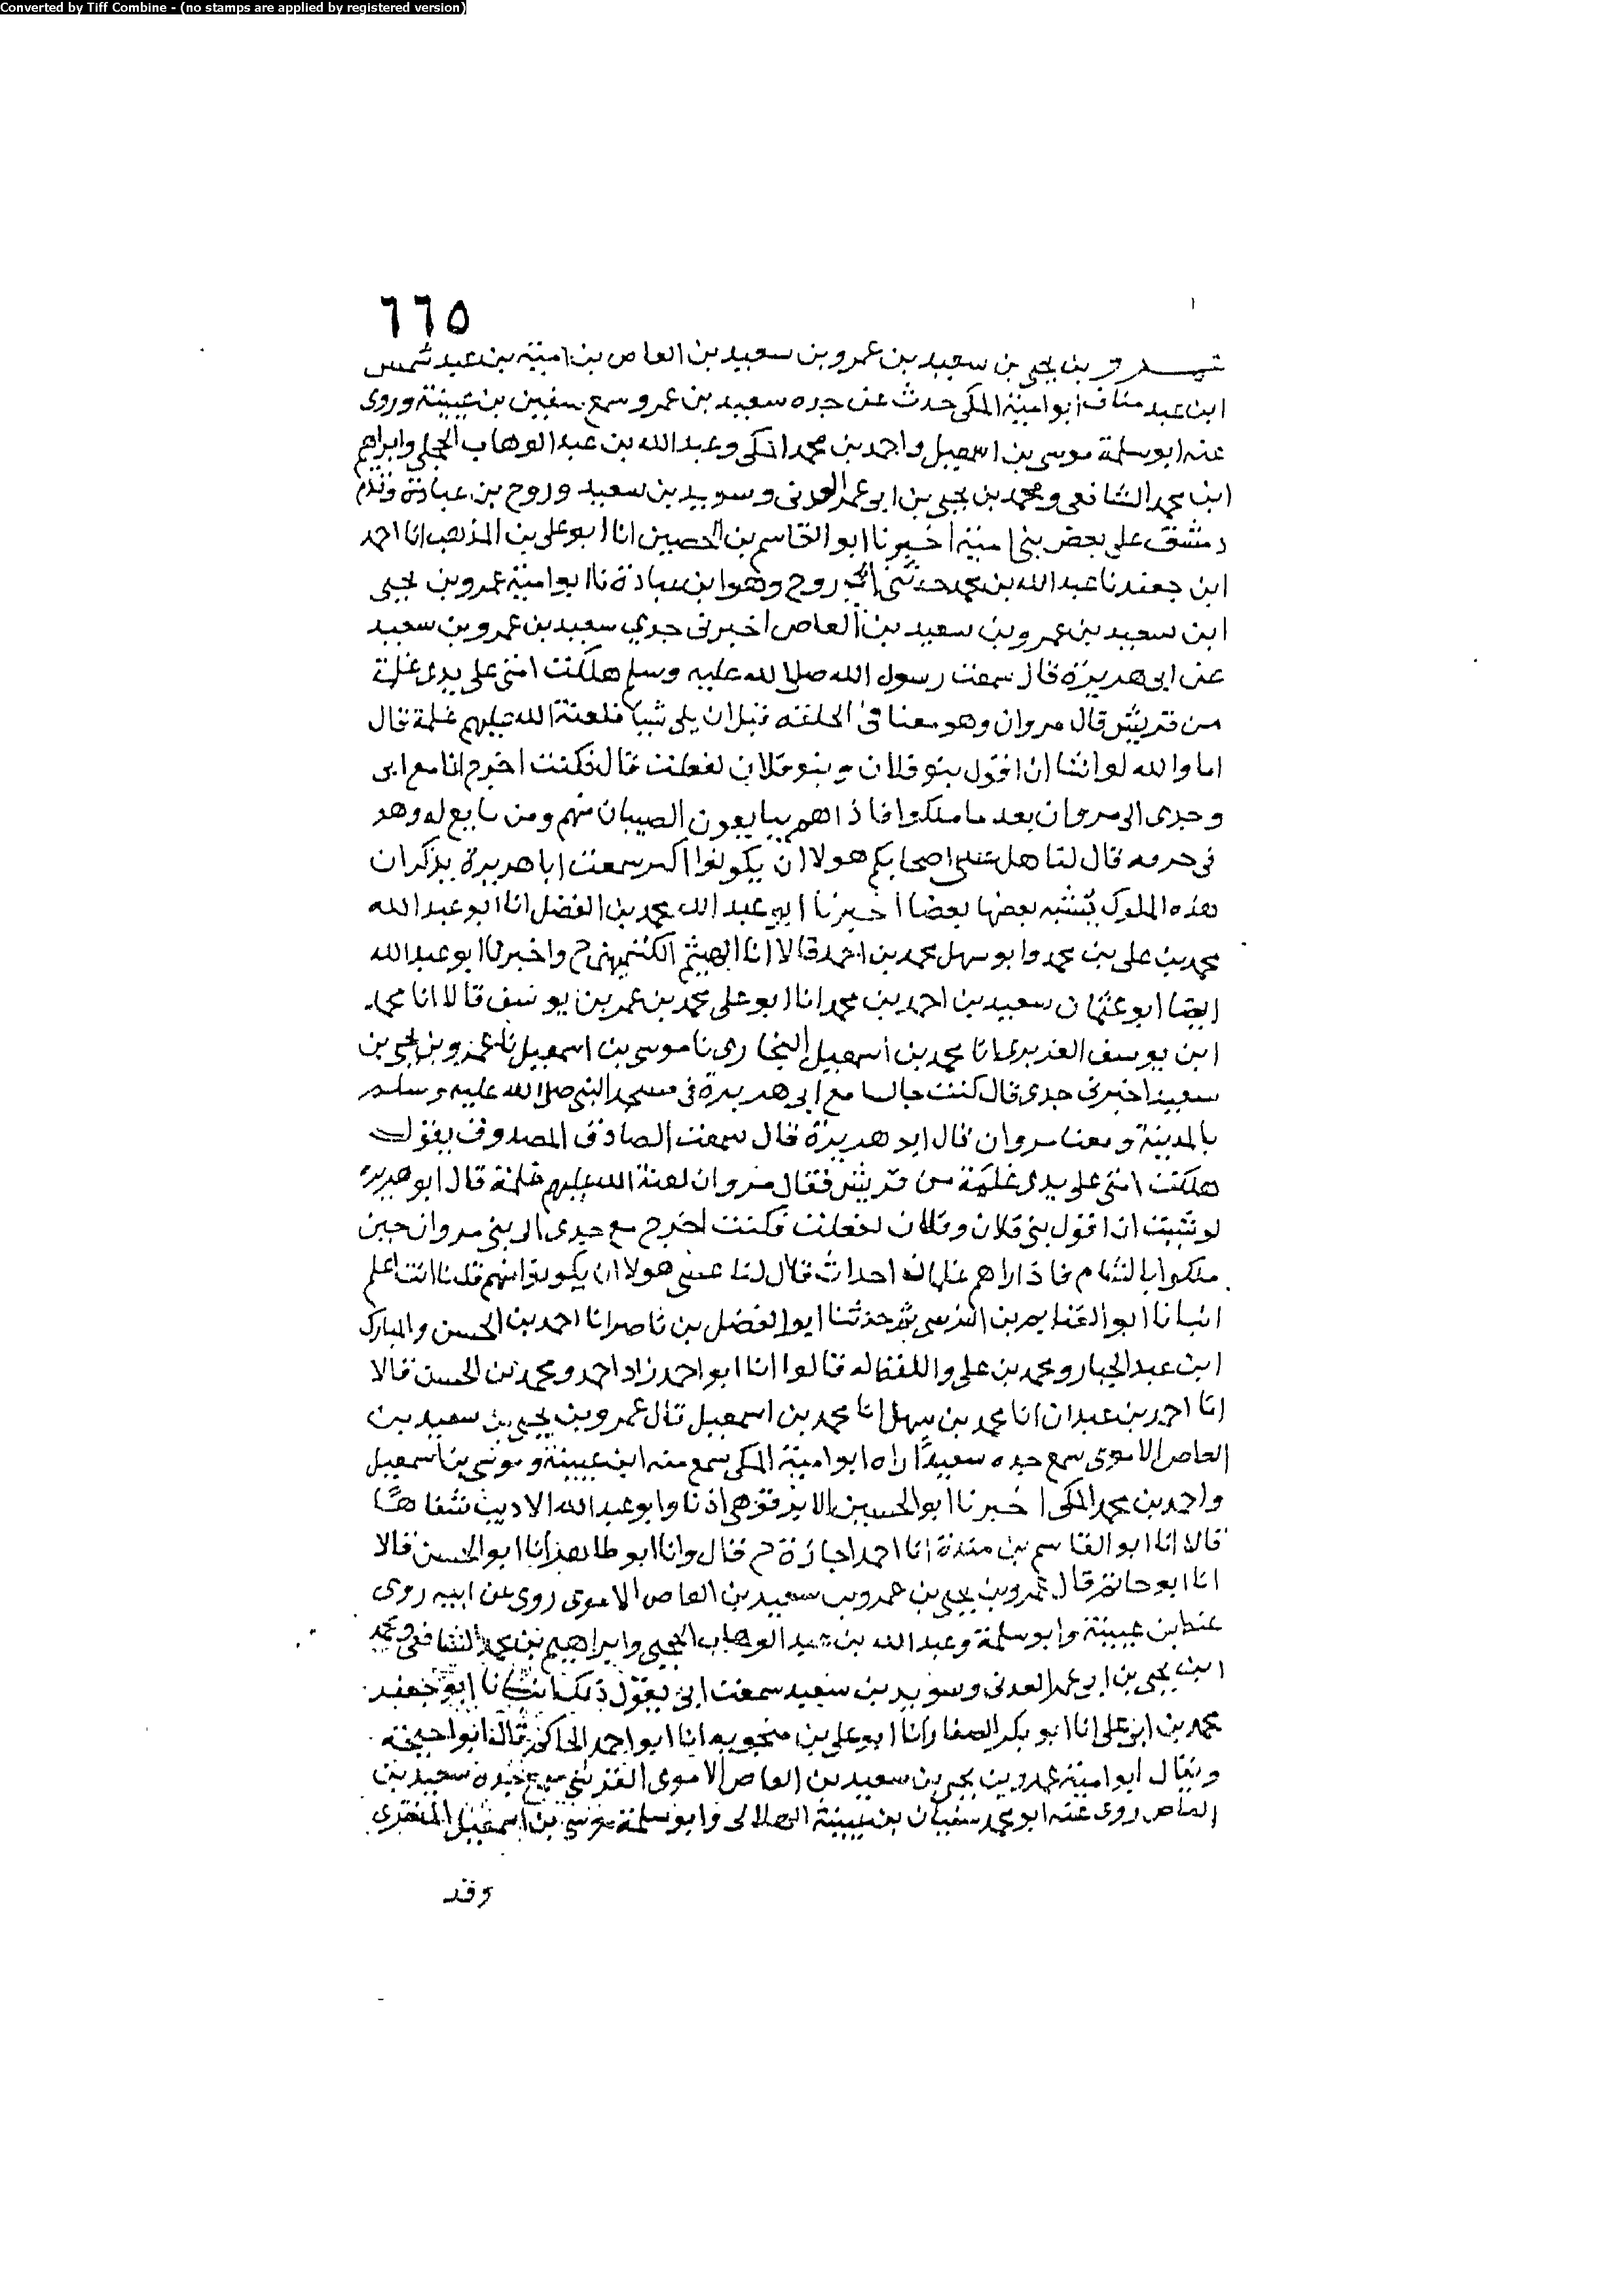 Converted by Tiff Combine - (no stamps are applied by registered version)
٦٦٥
عمرو بن يحيى بن سعيد بن عمرو بن سعيد بن العاص بن امية بن عبد شمس
ابن عبد مناف ابو امية المكى حدث عن جده سعيد بن عمرو سمع سفين بن عيينة وروى
عنه ابو سلمة موسى بن اسمعيل واحمد بن محمد المكى وعبد الله بن عبد الوهاب الحجبى وابراهيم
ابن محمد الشافعى ومحمد بن يحيى بن ابى عمر العدنى وسويد بن سعيد وروح بن عبادة وقدم
دمشق على بعض بنى امية اخبرنا ابو القاسم بن الحصين انا ابو على بن المذهب انا احمد
ابن جعفر نا عبد الله بن محمد حدثنى ابى روح وهو ابن عبادة نا ابو امية عمرو بن يحيى
ابن سعيد بن عمرو بن سعيد بن العاص اخبرنى جدي سعيد بن عمرو بن سعيد
عن ابى هريرة قال سمعت رسول الله صلى الله عليه وسلم هلكت امتى على يدى غلمة
من قريش قال مروان وهو معنا فى الحلقه قبل ان يلى شيا فلعنة الله عليهم غلمة قال
اما والله لو اشا ان اقول بنو فلان وبنو فلان لفعلت قال فكنت اخرج انا مع ابى
وجدى الى مروان بعد ما ملكوا فاذا هم يبايعون الصبيان منهم ومن يبايع له وهو
فى خرقه قال لنا هل عسى اصحابكم هولا ان يكونوا سمعت ابا هريرة يذكر ان
هذه الملوك يشبه بعضها بعضا اخبرنا ابو عبد الله محمد بن الفضل انا ابو عبد الله
محمد بن على بن محمد وابو سهل محمد بن احمد قالا انا ابو الهيثم الكشميهنى ح واخبرنا ابو عبد الله
ايضا ابو عثمان سعيد بن احمد بن محمد انا ابو على محمد بن عمر بن يوسف قالا انا محمد
ابن يوسف الفربرى انا محمد بن اسمعيل البخارى نا موسى بن اسمعيل نا عمرو بن يحيى بن
سعيد اخبرنى جدى قال كنت جالسا مع ابى هريرة فى مسجد النبى صلى الله عليه وسلم
بالمدينة ومعنا مروان قال ابو هريرة قال سمعت الصادق المصدوق يقول
هلكت امتى على يدى غلمة من قريش فقال مروان لعنة الله عليهم غلمة قال ابو هريرة
لو شيت ان اقول بنى فلان وفلان لفعلت فكنت اخرج مع جدى الى بنى مروان حين
ملكوا بالشام فاذا راهم غلمانا احداث قال لنا عسى هولا ان يكونوا منهم قلنا انت اعلم
انبانا ابو الغنايم بن النرسى ثم حدثنا ابو الفضل بن ناصر انا احمد بن الحسن والمبارك
ابن عبد الجبار ومحمد بن على واللفظ له قالوا انا ابو احمد زاد احمد ومحمد بن الحسن قالا
انا احمد بن عبدان انا محمد بن سهل انا محمد بن اسمعيل قال عمرو بن يحيى بن سعيد بن
العاص الاموى سمع جده سعيدا اراه ابو امية المكى سمع منه ابن عيينة وموسى بن اسمعيل
واحمد بن محمد المكى اخبرنا ابو الحسين الابرقوهى اذنا وابو عبد الله الاديب شفاها
قالا انا ابو القاسم بن مندة انا احمد اجازة ح قال وانا ابو طاهر انا ابو الحسن قالا
انا ابو حاتم قال عمرو بن يحيى بن عمرو بن سعيد بن العاص الاموى روى عن ابيه روى
عنه ابن عيينة وابو سلمة وعبد الله بن عبد الوهاب الحجبى وابراهيم بن محمد الشافعى ومحمد
ابن يحيى بن ابى عمر العدنى وسويد بن سعيد سمعت ابى يقول ذلك انبانا ابو جعفر
محمد بن ابى على انا ابو بكر الصفار انا ابو على بن منجويه انا ابو احمد الحاكم قال ابو احيحة
ويقال ابو امية عمرو بن يحيى بن سعيد بن العاص الاموى القرشى سمع جده سعيد بن
العاص روى عنه ابو محمد سفيان بن عيينة الهلالى وابو سلمة موسى بن اسمعيل المنقرى
وقد